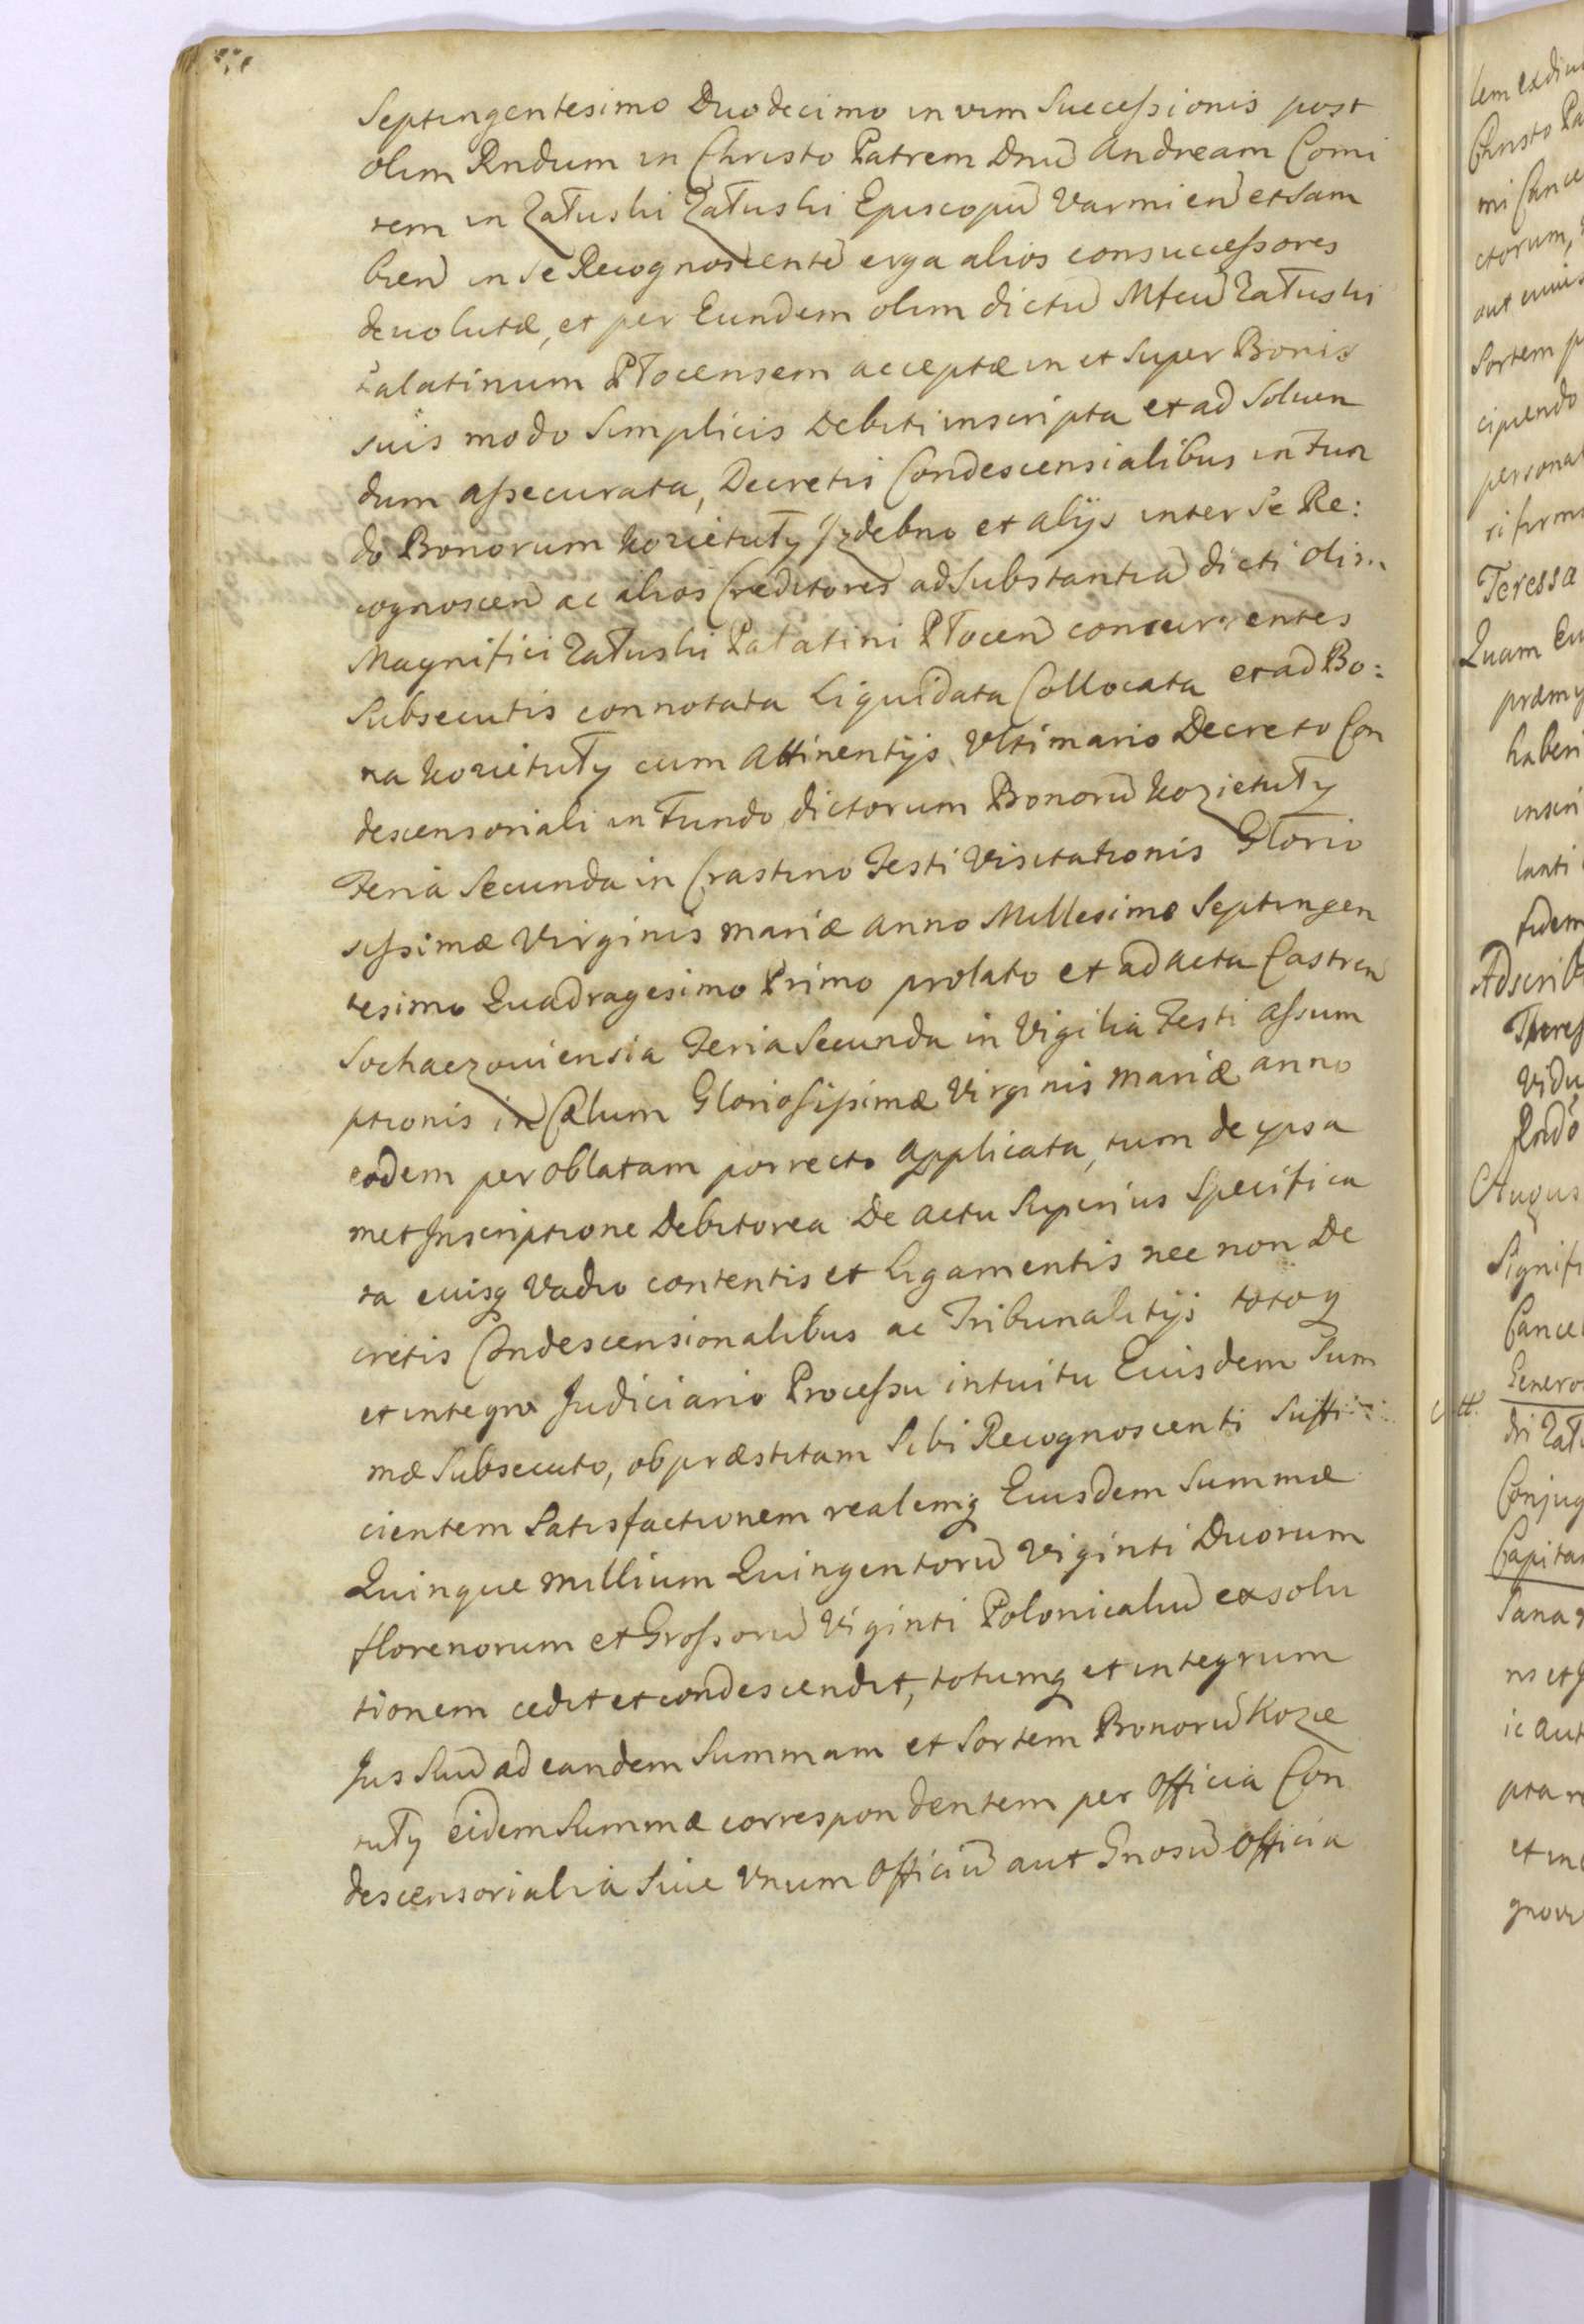 Septingentesimo Duodecimo in vim Successionis post
olim Rndum in Christo Patrem Dnū Andream Comi
tem in Załuski Załuski Episcopū Varmien̄ et Sam
bien̄ in se Recognoscentē erga alios consuccessores
devolutæ, et per Eundem olim dictū Mfcū Załuski
Palatinum Płocensem acceptæ in et super Bonis
suis modo Simplicis Debiti inscripta et ad Soluen
dum assecurata, Decretis Condescensialibus in Fun
do Bonorum Kozietuły Jzdebno et alijs inter se Re:
cognoscen̄ ac alios Creditores ad Substantiā dicti olim
Magnifici Załuski Palatini Płocen̄ concurrentes
Subsecutis connotata Liquidata Collocata et ad Bo:
na Kozietuły cum Attinentijs Ultimario Decreto Con
descensoriali in Fundo dictorum Bonorū Kozietuły
Feria Secunda in Crastino Festi Visitationis Glorio
sissimæ Virginis Mariæ Anno Millesimo Septingen
tesimo Quadragesimo Primo prolato et ad Acta Castren
Sochaczoviensia Feria Secunda in Vigilia Festi Assum
ptionis in Cælum Gloriosissimæ Virginis Mariæ anno
eodem per oblatam porrecto applicata, tum de ipsa
met Inscriptione Debitorea De actu Superius Specifica
ta eiusq Vadio contentis et ligamentis nec non De
cretis Condescensionalibus ac Tribunalitijs totoq
et integro Judiciario Processu intuitu Eiusdem Sum
mæ Subsecuto, ob præstitam Sibi Recognoscenti Suffi
cientem Satisfactionem realemq Eiusdem Summæ
Quinque millium Quingentorū Viginti Duorum
florenorum et Grossorū Viginti Polonicaliū exsolu
tionem cedit et condescendit, totumq et integrum
Jus Suū ad eandem Summam et Sortem Bonorū Kozie
tuły eidem Summæ correspondentem per Officia Con
descensorialia Siue Unum Officiū aut Gnosū Officia
Christo Pa
ctorum,
Sortem p
cipiendo
personal
Teressa
Quam Eu
haberi
Adscrib
Vidu
Augus
Signifi
Cance
Genero
Conjug
Capita
ic aut